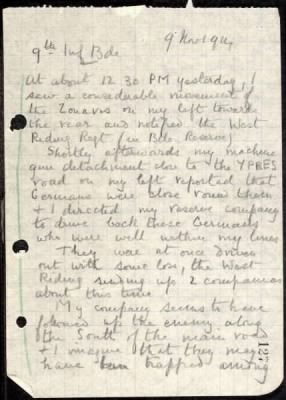 9 Nov 1914
9th Inf Bde
At about 12.30 PM yesterday, I
saw a considerable movement of
the Zouaves on my left towards
the rear and notified the West
Riding Regt (in Bde Reserve)
Shortly afterwards my machine
gun detachment close to the YPRES
road on my left reported that
Germans were close round them
& I directed my reserve company
to drive back these Germans
who were well within my lines
They were at once driven
out with some loss, the West
Riding sending up 2 companies
about this time.
My company seems to have
followed up the enemy along
the South of the main road
& I imagine that they may
have been trapped among
127